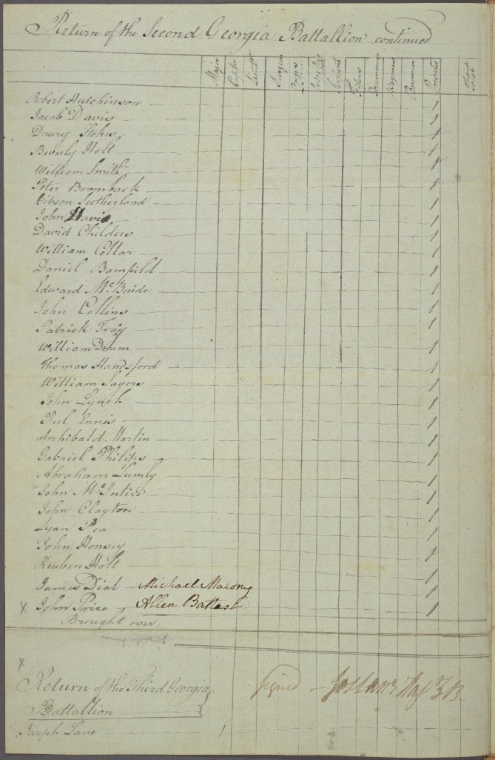 Return of the Second Georgia Battallion continued
Major Capt Lieut
Robert Hutchinson 1
Jacob Davis 1
Drury Stokes 1
Beverly Holt 1
William Smith 1
Peter Bramback 1
Gibson Sutherland 1
John Davis 1
David Childers 1
William Collar 1
Daniel Bamfield 1
Edward McBride 1
John Collins 1
Patrick Troy 1
William Drum 1
Thomas Handsford 1
William Sayers 1
John Lynch 1
Neil Ennis 1
Archibald Martin 1
Gabriel Philips 1
Abraham Lumly 1
John McIntire 1
John Clayton 1
1
John Honsey 1
Reuben Holt 1
James Dial - Michael Malony 1
x John Price Allen Battest 1
Brought over
x
Return of the Third Georgia signed - Jos Lane Maj 3 B
Battallion
Joseph Lane 1